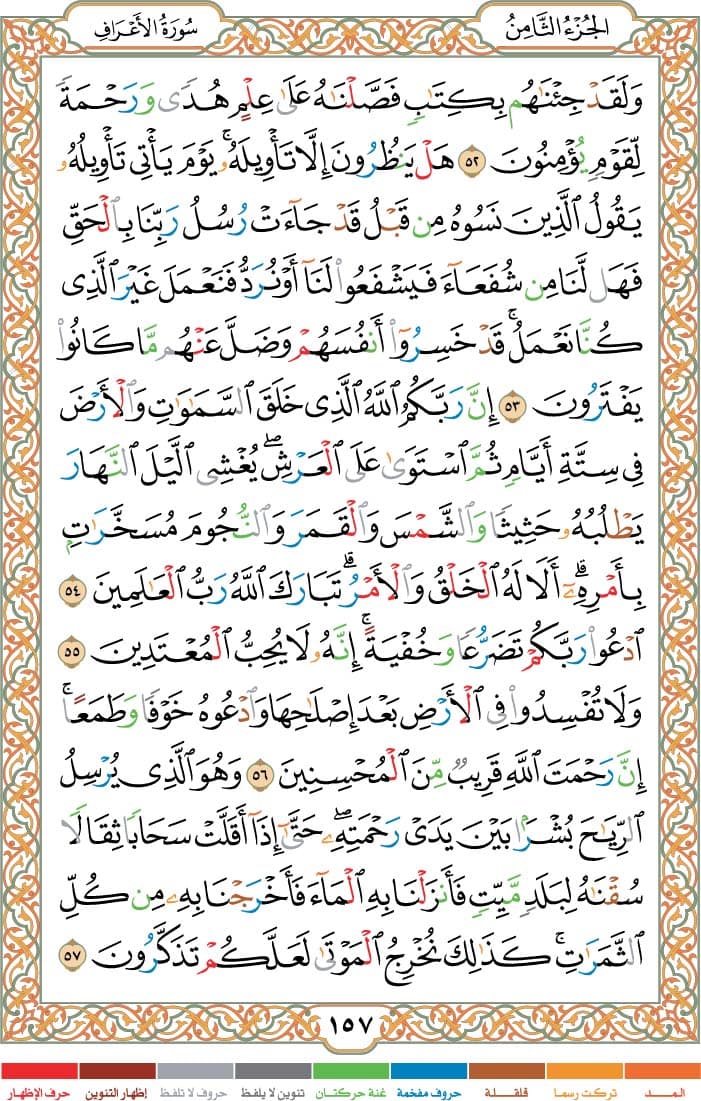 سُورَةُ الأَعۡرَافِ
الجُزۡءُ الثَّامِنُ
وَلَقَدۡ جِئۡنَٰهُم بِكِتَٰبٖ فَصَّلۡنَٰهُ عَلَىٰ عِلۡمٍ هُدٗى وَرَحۡمَةٗ
لِّقَوۡمٖ يُؤۡمِنُونَ ٥٢ هَلۡ يَنظُرُونَ إِلَّا تَأۡوِيلَهُۥۚ يَوۡمَ يَأۡتِي تَأۡوِيلُهُۥ
يَقُولُ ٱلَّذِينَ نَسُوهُ مِن قَبۡلُ قَدۡ جَآءَتۡ رُسُلُ رَبِّنَا بِٱلۡحَقِّ
فَهَل لَّنَا مِن شُفَعَآءَ فَيَشۡفَعُواْ لَنَآ أَوۡ نُرَدُّ فَنَعۡمَلَ غَيۡرَ ٱلَّذِي
كُنَّا نَعۡمَلُۚ قَدۡ خَسِرُوٓاْ أَنفُسَهُمۡ وَضَلَّ عَنۡهُم مَّا كَانُواْ
يَفۡتَرُونَ ٥٣ إِنَّ رَبَّكُمُ ٱللَّهُ ٱلَّذِي خَلَقَ ٱلسَّمَٰوَٰتِ وَٱلۡأَرۡضَ
فِي سِتَّةِ أَيَّامٖ ثُمَّ ٱسۡتَوَىٰ عَلَى ٱلۡعَرۡشِۖ يُغۡشِي ٱلَّيۡلَ ٱلنَّهَارَ
يَطۡلُبُهُۥ حَثِيثٗا وَٱلشَّمۡسَ وَٱلۡقَمَرَ وَٱلنُّجُومَ مُسَخَّرَٰتِۭ
بِأَمۡرِهِۦٓۗ أَلَا لَهُ ٱلۡخَلۡقُ وَٱلۡأَمۡرُۗ تَبَارَكَ ٱللَّهُ رَبُّ ٱلۡعَٰلَمِينَ ٥٤
ٱدۡعُواْ رَبَّكُمۡ تَضَرُّعٗا وَخُفۡيَةًۚ إِنَّهُۥ لَا يُحِبُّ ٱلۡمُعۡتَدِينَ ٥٥
وَلَا تُفۡسِدُواْ فِي ٱلۡأَرۡضِ بَعۡدَ إِصۡلَٰحِهَا وَٱدۡعُوهُ خَوۡفٗا وَطَمَعًاۚ
إِنَّ رَحۡمَتَ ٱللَّهِ قَرِيبٞ مِّنَ ٱلۡمُحۡسِنِينَ ٥٦ وَهُوَ ٱلَّذِي يُرۡسِلُ
ٱلرِّيَٰحَ بُشۡرَۢا بَيۡنَ يَدَيۡ رَحۡمَتِهِۦۖ حَتَّىٰٓ إِذَآ أَقَلَّتۡ سَحَابٗا ثِقَالٗا
سُقۡنَٰهُ لِبَلَدٖ مَّيِّتٖ فَأَنزَلۡنَا بِهِ ٱلۡمَآءَ فَأَخۡرَجۡنَا بِهِۦ مِن كُلِّ
ٱلثَّمَرَٰتِۚ كَذَٰلِكَ نُخۡرِجُ ٱلۡمَوۡتَىٰ لَعَلَّكُمۡ تَذَكَّرُونَ ٥٧
١٥٧
المـــد تركت رسما قلقلة حروف مفخمة غنة حركتان تنوين لا يلفظ حروف لا تلفظ إظهار التنوين حرف الإظهار